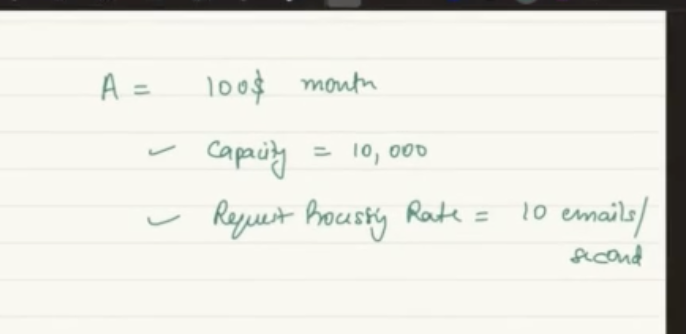 A = 100$ month
✓ Capacity = 10,000
✓ Request Processing Rate = 10 emails/
second